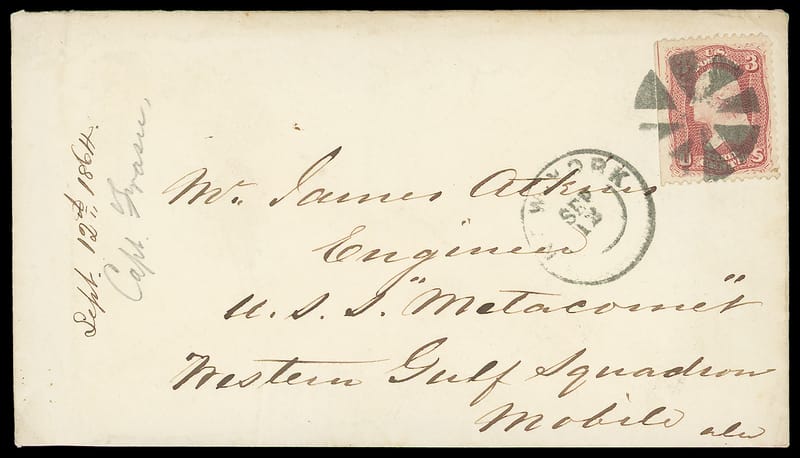 Sept. 12th 1864.
Capt.
U.S. 3
U S
NEW YORK
SEP
12
Mr. James Atkins
Engineer
U. S. S. "Metacomet"
Western Gulf Squadron
Mobile